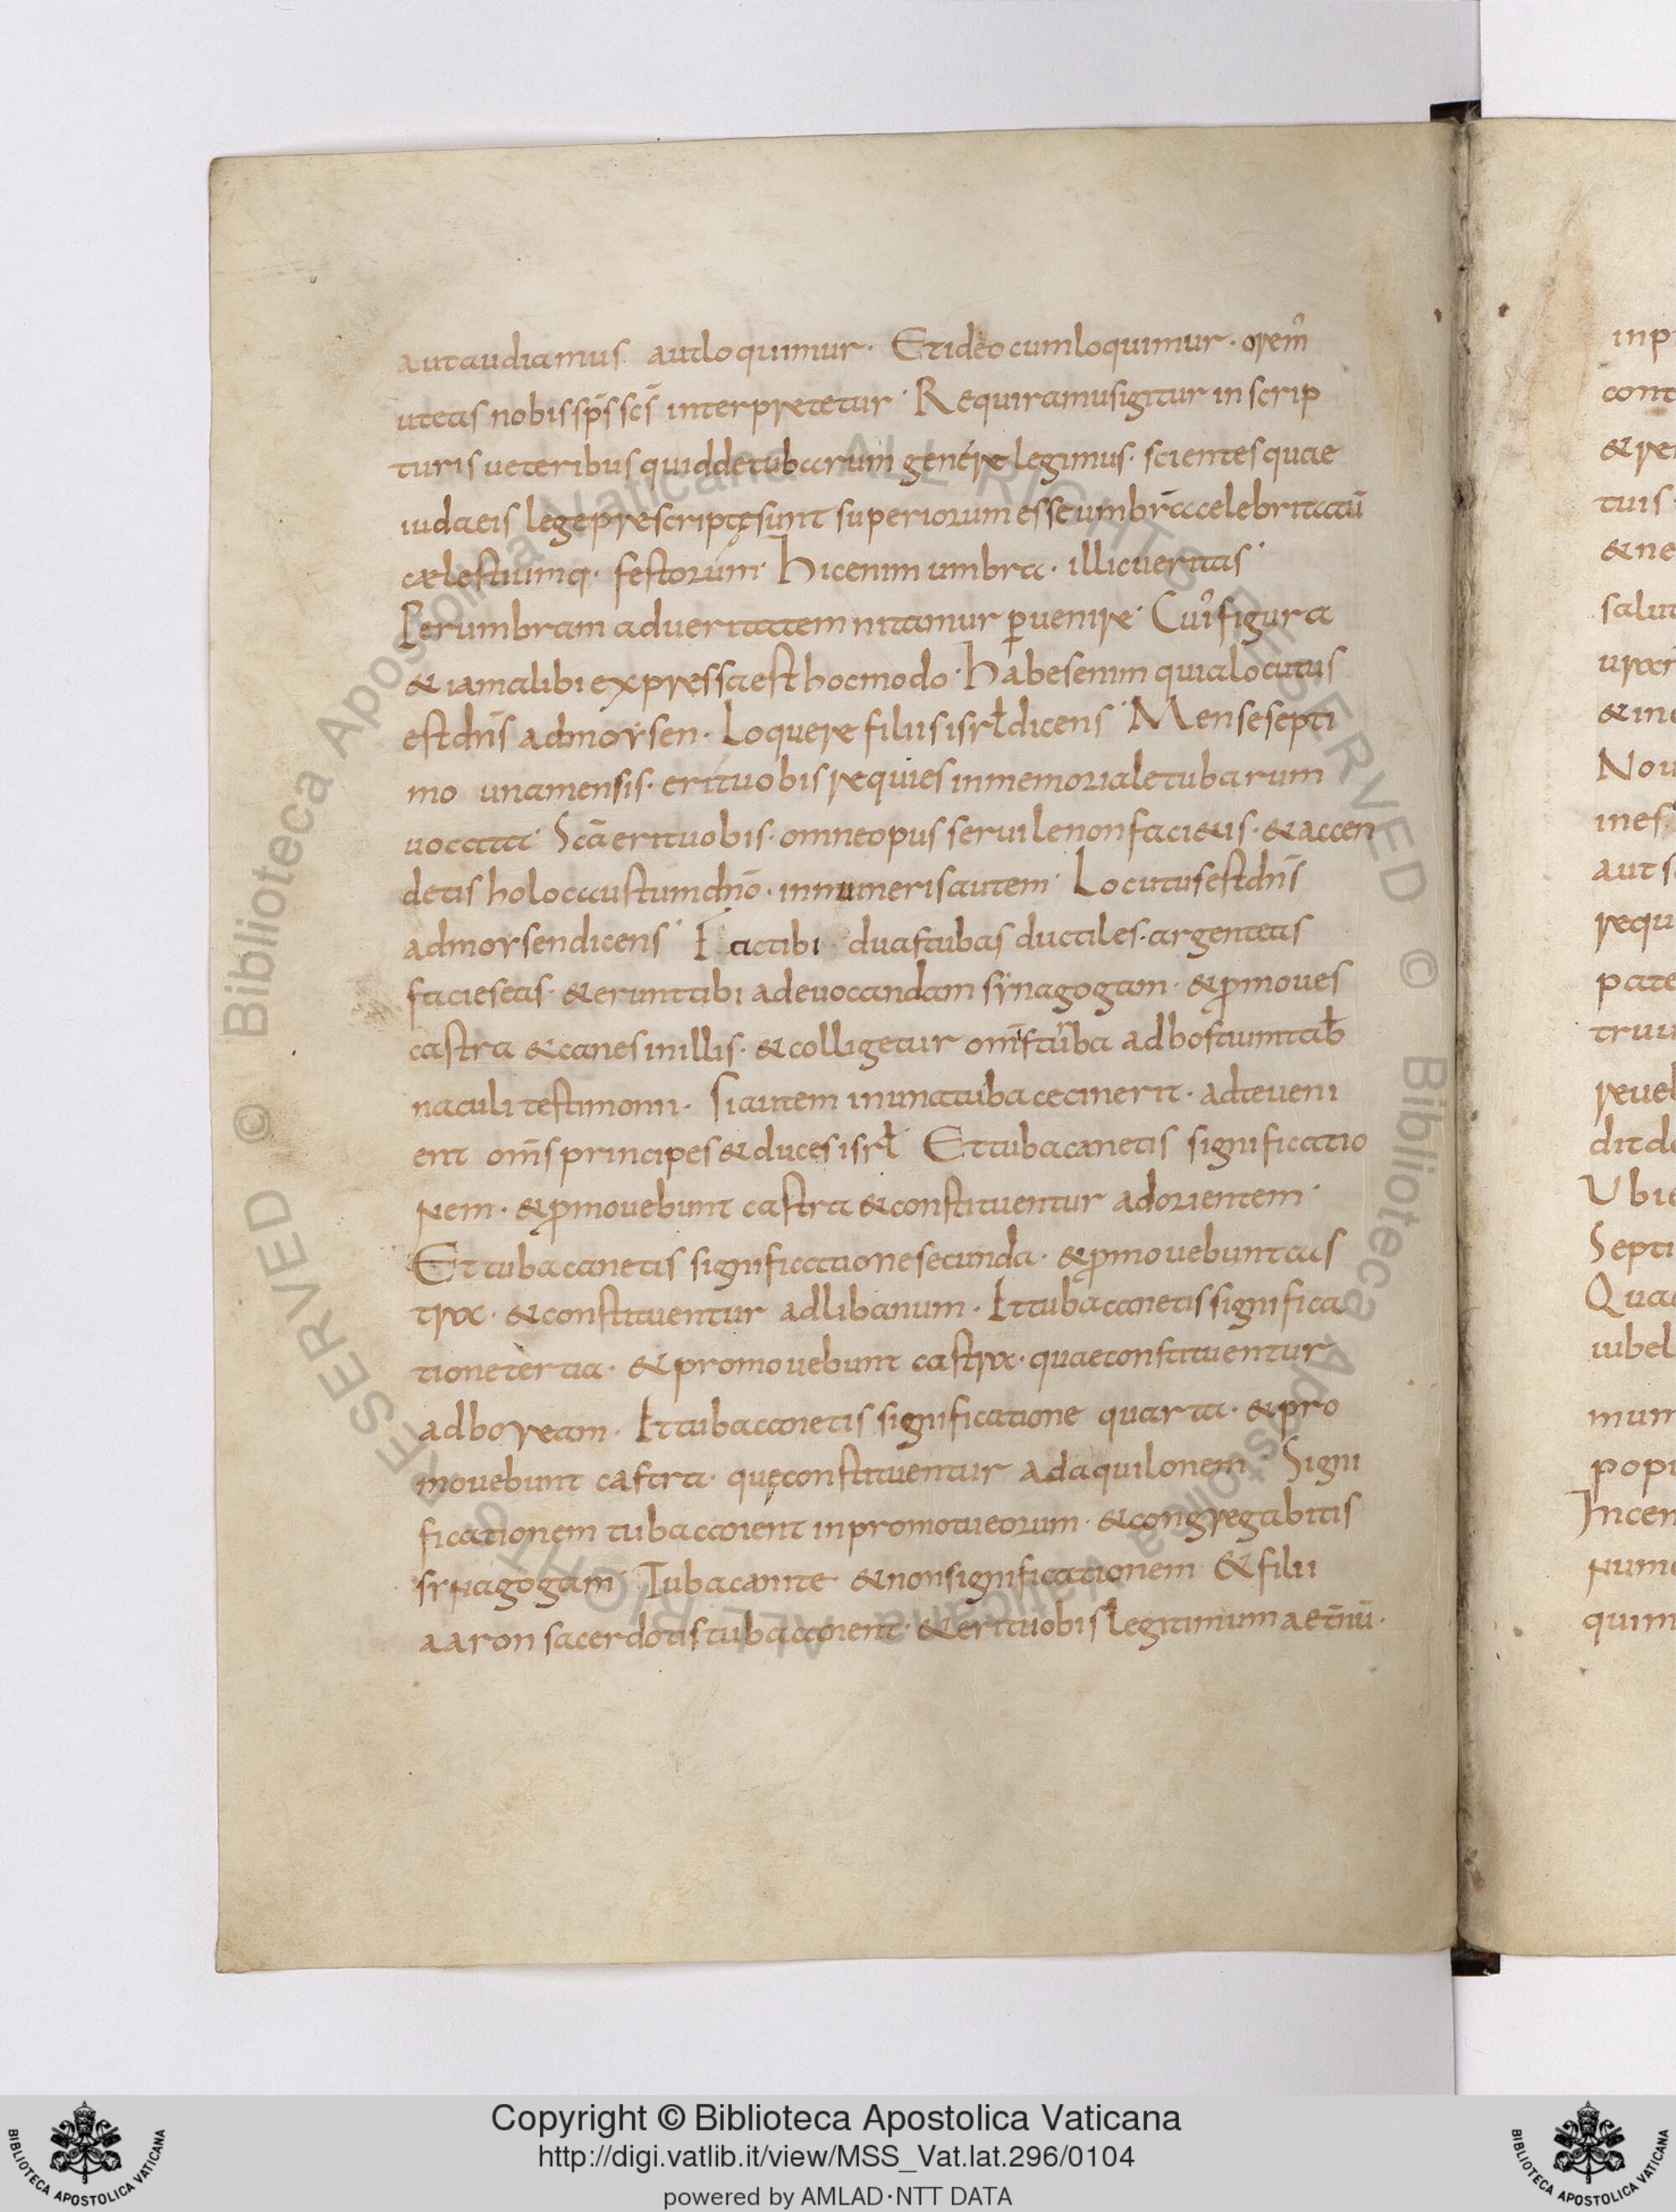 aut audiamus aut loquimur· Et ideo cum loquimur· orem᷒
ut eas nobis sp̄s sc̄s interpretetur· Requiramus igitur in scrip
turis ueteribus quid de tubarum genere legimus· scientes quae
iudaeis lege prescripte̜ sunt superiorum esse umbrā celebritatū
cælestiumq· festorum· Hic enim umbra· illic ueritas·
Per umbram ad ueritatem nitamur ꝑuenire· Cui᷒ figura
& iam alibi expressa est hoc modo· Habes enim quia locutus
est dn̄s ad moysen· Loquere filiis isrł dicens· Mense septi
mo una mensis· erit uobis requies in memoriale tubarum
uocata· Scā erit uobis· omne opus seruile non faci&is· & accen
detis holocaustum dn̄o· in numeris autem· Locutus est dn̄s
ad moysen dicens· Fac tibi duas tubas ductiles· argenteas
facies eas· & erunt tibi ad euocandam synagogam· & ꝓmoues
castra & canes in illis· & colligetur om̄s tuba ad hostium tab
naculi testimonii· Si autem in una tuba cecinerit· ad te ueni
ent om̄s principes & duces isrł Et tuba canetis significatio
nem· & ꝓmouebunt castra & constituentur ad orientem·
Et tuba canetis significatione secunda· & ꝓmouebunt cas
tra· & constituentur ad libanum· Et tuba canetis significa
tione tertia· & promouebunt castra· quae constituentur
ad boream· Et tuba canetis significatione quarta· & pro
mouebunt castra· que̜ constituentur ad aquilonem· Signi
ficationem tuba canent in promotu eorum· & congregabitis
synagogam· Tuba canite & non significationem & filii
aaron sacerdotis tuba canent· & erit uobis legitimum aet̄nū·
inp
cont
& re
tuis
& ne
salut
urxi
& in
Nou
ines
aut s
requ
pate
truu
reuel
dit d
Ubi
Septi
Qua
iubel
mum
popu
Incen
num
quim
Copyright © Biblioteca Apostolica Vaticana
http://digi.vatlib.it/view/MSS_Vat.lat.296/0104
powered by AMLAD·NTT DATA
BIBLIOTECA APOSTOLICA VATICANA
BIBLIOTECA APOSTOLICA VATICANA
© Biblioteca Apostolica Vaticana ALL RIGHTS RESERVED
© Biblioteca Apostolica Vaticana ALL RIGHTS RESERVED